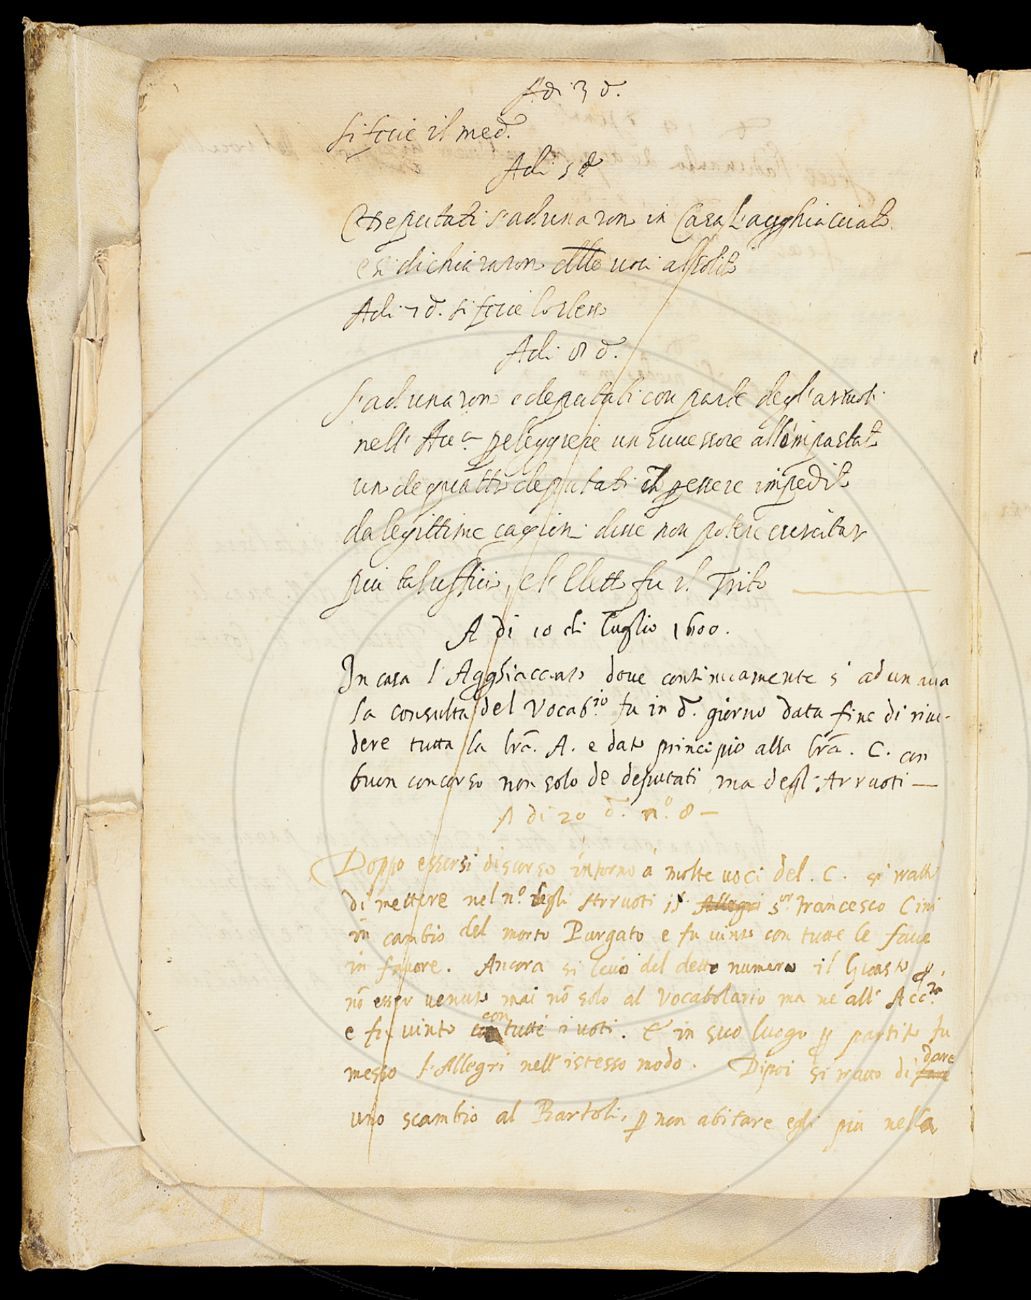 Adi 3 d.
si fecie il med.
Adi 5 d.
E deputati s'adunaron in Casa l'agghiacciato
e si dichiararon delle voci assolute
Adi 7 d. si fecie lo stesso
Adi 8 d.
s'adunaron e deputati con parte degl'arruoti
nell' Acc.a p eleggiere un successore all'impastato
un de quattro deputati il p essere impedito
da legittime cagioni disse non potere esercitar
più tal uffizio, e l' Eletto fu il Trito
A di 10 di Luglio 1600.
In casa l'Agghiacciato dove continuamente s'adunava
la consulta del Vocab.rio fu in d. giorno data fine di rive-
dere tutta la lra. A. e dato principio alla lra. C. con
buon concorso non solo de deputati ma degl'Arruoti
A di 20 d. n.o 8
Doppo essersi discorso intorno a molte voci del .C. si trattò
di mettere nel n.o degli Arruoti il Allegri S.or Francesco Cini
in cambio del morto Purgato e fu vinto con tutte le fave
in favore. Ancora si levò del detto numero il Guasto p
nō esser venuto mai nō solo al Vocabolario ma ne all' Acc.a
e fu vinto con tutti i voti. E in suo luogo p partito fu
messo l'Allegri nell'istesso modo. Dipoi si trattò di dare
uno scambio al Bartoli, p non abitare egli più nella